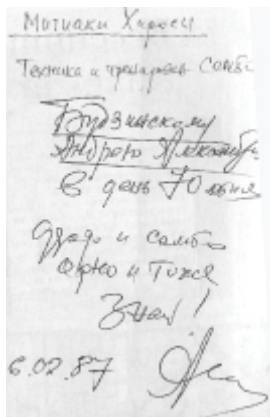 Митиаки Хироси
Техника и тренировка Самбо
Будзинскому
Андрею
в день 70летия
дзюдо и самбо
одно и тоже
Знай!
6.02.87